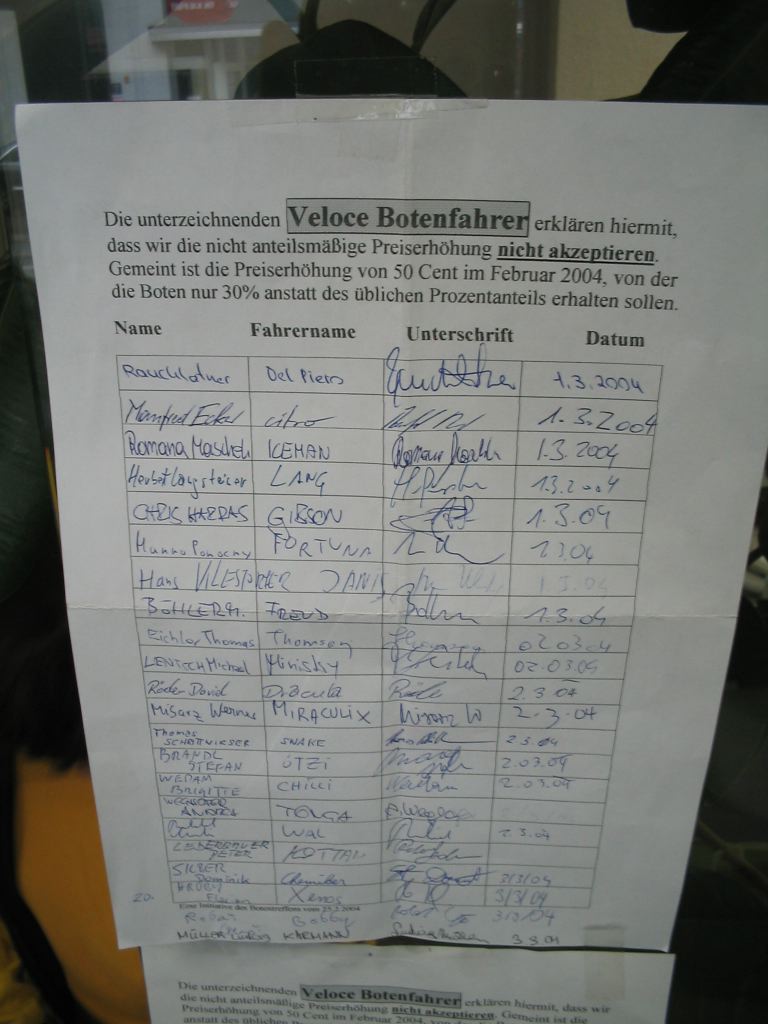 Die unterzeichnenden Veloce Botenfahrer erklären hiermit,
dass wir die nicht anteilsmäßige Preiserhöhung nicht akzeptieren.
Gemeint ist die Preiserhöhung von 50 Cent im Februar 2004, von der
die Boten nur 30% anstatt des üblichen Prozentanteils erhalten sollen.
Name Fahrername Unterschrift Datum
Del Piero 1.3.2004
Manfred Ecker citro 1.3.2004
Romana Maschek ICEMAN 1.3.2004
LANG 1.3.2004
CHRIS HARRAS GIBSON 1.3.04
FORTUNA 1.3.04
Hans
BÖHLER H. FREUD 1.3.04
Eichler Thomas Thomson 02.03.04
LENTSCH Michael Minisky 02.03.04
Röder David Dracula 2.3.04
Misarz Werner MIRACULIX 2.3.04
Thomas SNAKE 2.3.04
BRANDL STEFAN ÖTZI 2.03.04
WEDAM BRIGITTE CHILLI 2.03.04
ANDREA TONGA
WAL 2.3.04
LEDERBAUER PETER KOTTAN
SILBER Dominik Chemiker 3/3/04
HRUBY Florian Xenos 3/3/04
20. Eine Initiative des Botentreffens vom
Bobby 3/3/04
MÜLLER KARMANN
Die unterzeichnenden Veloce Botenfahrer erklären hiermit, dass wir
die nicht anteilsmäßige Preiserhöhung nicht akzeptieren. Gemeint ist die
Preiserhöhung von 50 Cent im Februar 2004, von der
anstatt des üblichen